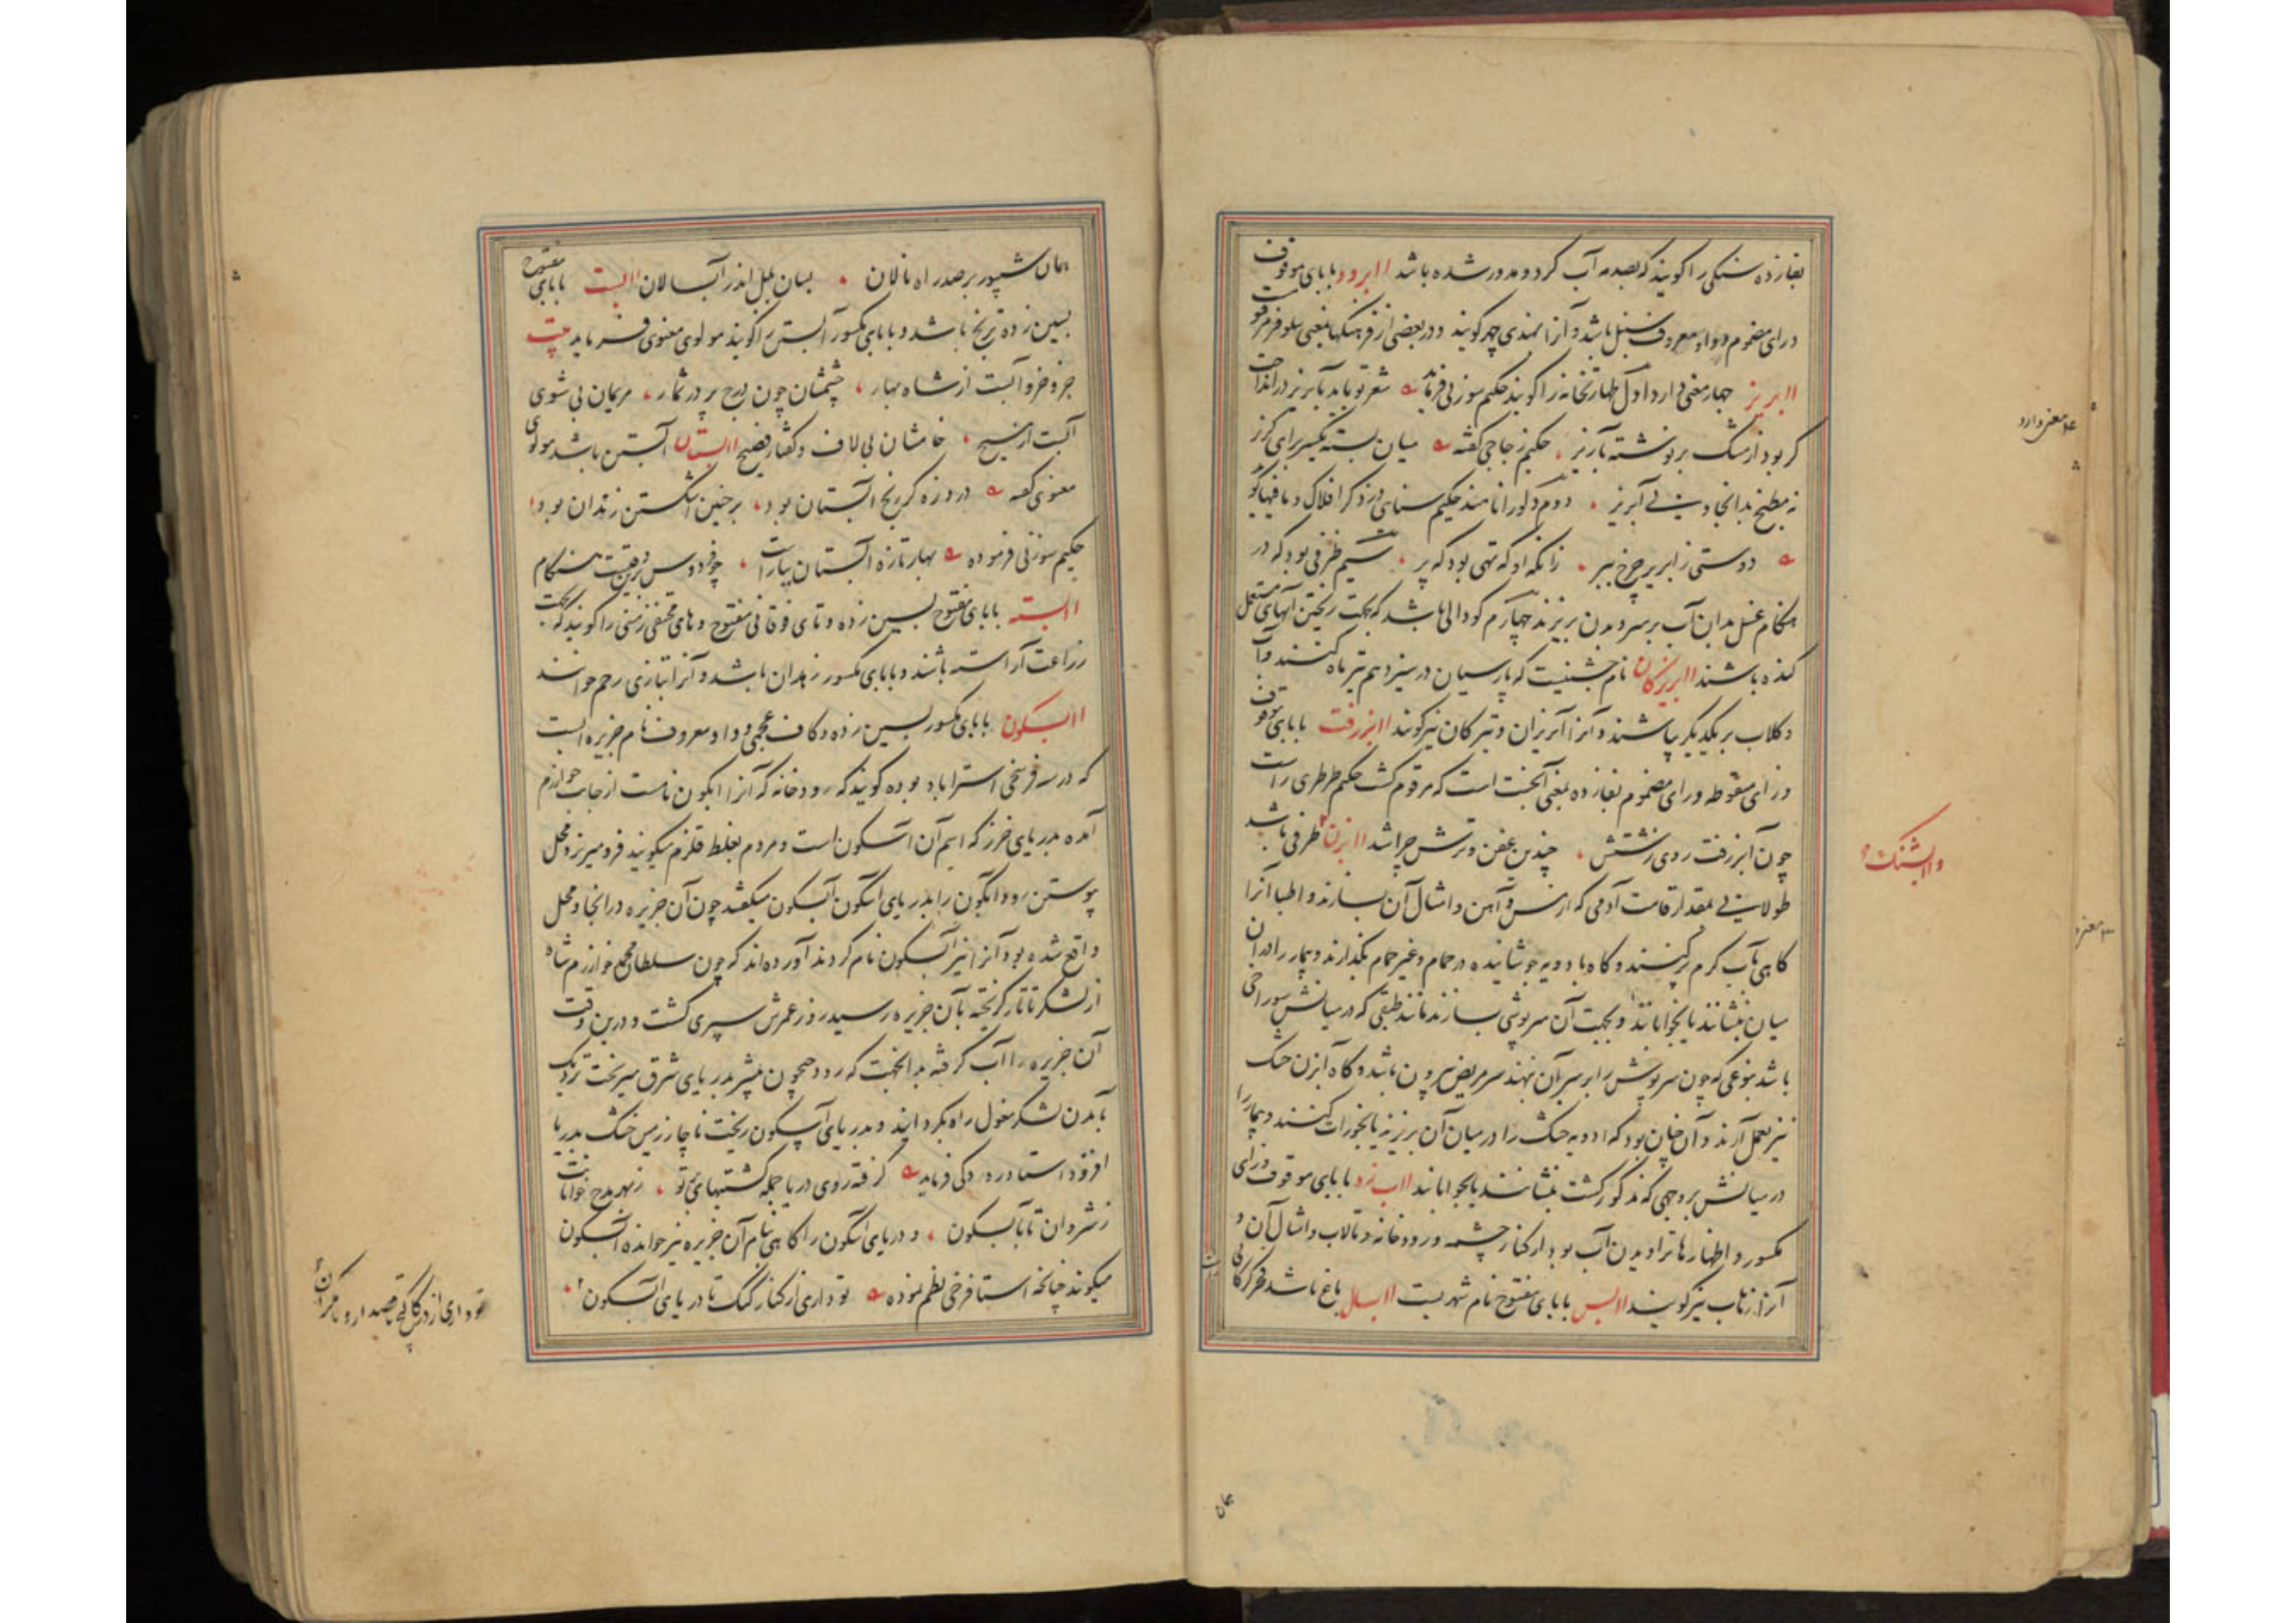 بفازده سنگی را گویند که بصدمه آب گرد و مدور شده باشد اابرود بابای موقوف
و رای مضموم و واو معروف سنبل باشد و آنرا بهندی چهر گویند و در بعضی از فرهنگها بمعنی نیلوفر مرقومست
اابریز چهار معنی دارد اول طهارتخانه را گویند حکیم سوزنی فرماید شعر تو باید بآبریز در انداخت
گر بود از مشک بر نوشته بآبریز حکیم زجاجی گفته میان بسته یکسر برای گریز
نه مطبخ بد انجا و نی آبریز دوم دلو را نامند حکیم سنائی در ذکر افلاک و مافیها گوید
دوستی زابریز چرخ ببر زانکه او گه تهی بود گه پر سیم ظرفی بود که در
هنگام غسل بدان آب بر سر و بدن بریزند چهارم گودالی باشد که بجهت ریختن آبهای مستعمل
کنده باشند اابریزگان نام جشنیست که پارسیان در سیزدهم تیر ماه کنند و آب
و گلاب بر یکدیگر بپاشند و آنرا آبریزان و تیرگان نیز گویند اابزرفت بابای موقوف
و زای منقوطه و رای مضموم بفازده بمعنی آبخست است که مرقوم گشت حکیم طرطری راست
چون آبزرفت روی زشتش چندین عفن و ترش چرا شد اابزن ظرفی باشد
طولانی بمقدار قامت آدمی که از مس و آهن و امثال آن بسازند و اطبا آنرا
گاهی بآب گرم پر کنند و گاه بادویه جوشانیده در حمام و غیر حمام بگذارند و بیمار را در آن
میان بنشانند یا بخوابانند و بجهت آن سرپوشی سازند مانند طبقی که در میانش سوراخی
باشد بنوعی که چون سرپوش را بر سر آن نهند سر مریض بیرون باشد و گاه آبزن خشک
نیز بعمل آرند و آن چنان بود که ادویه خشک را در میان آن بریزند یا بخورات کنند و بیمار را
در میانش بروجهی که مذکور گشت بنشانند یا بخوابانند ااب زه بابای موقوف و زای
مکسور و اظهار ها تراویدن آب بود از کنار چشمه و رودخانه و تالاب و امثال آن و
آنرا زهاب نیز گویند اابس بابای مفتوح نام شهریست اابسال باغ باشد فخر گرگانی
راست
همان
۴ معنی دارد
واابشنک
۳ معنی
همان شیپور بر صد راه نالان بسان بلبل اندر آبسالان اابست بابای مفتوح
بسین زده ترنج باشد و بابای مکسور آبستن را گویند مولوی معنوی فرماید بیت
جزو جزو آبست از شاه بهار جسمشان چون درج پر در ثمار مریمان بی شوی
آبست از مسیح خامشان بی لاف و گفتار فصیح اابستان آبستن باشد مولوی
معنوی گفته درد زه گر رنج آبستان بود بر جنین اشکستن زندان بود
حکیم سوزنی فرموده بهار تازه آبستان بیاراست چو فردوس برین وقت هنگام
اابسته بابای مفتوح بسین زده و تای فوقانی مفتوح و های مختفی زمینی را گویند که بجهت
زراعت آراسته باشند و بابای مکسور زهدان باشد و آنرا بتازی رحم خوانند
اابسکون بابای مکسور بسین زده و کاف عجمی و واو معروف نام جزیره ایست
که در سه فرسخی استراباد بوده گویند که رودخانه که آنرا ابگون نامست از جانب خوارزم
آمده بدریای خزر که اسم آن اسگون است و مردم بغلط قلزم میگویند فرو میریزد و محل
پیوستن رود ابگون را بدریای اسگون آبسکون میگفتند چون آن جزیره در انجا و محل
واقع شده بود آنرا نیز آبسکون نام کردند آورده اند که چون سلطان محمد خوارزم شاه
از لشکر تاتار گریخته بآن جزیره رسید روز عمرش سپری گشت و درین وقت
آن جزیره را آب گرفته بدانجهت که رود جیحون پیشتر بدریای شرق میریخت نزدیک
بآمدن لشکر مغول راه بگردانید و بدریای آبسکون ریخت ناچار زمین خشک بدریا
افزود استاد رودکی فرماید گرفته روی دریا جمله کشتیهای تو بر تو زبهر مدح خوانانت
ز شروان تا بآبسکون و دریای اسگون را گاهی بنام آن جزیره نیز خوانده آبسکون
میگویند چنانچه استاد فرخی نظم نموده تو داری از کنار گنگ تا دریای آبسکون
تو داری از در گالنجر تا قصدار و تا مکران